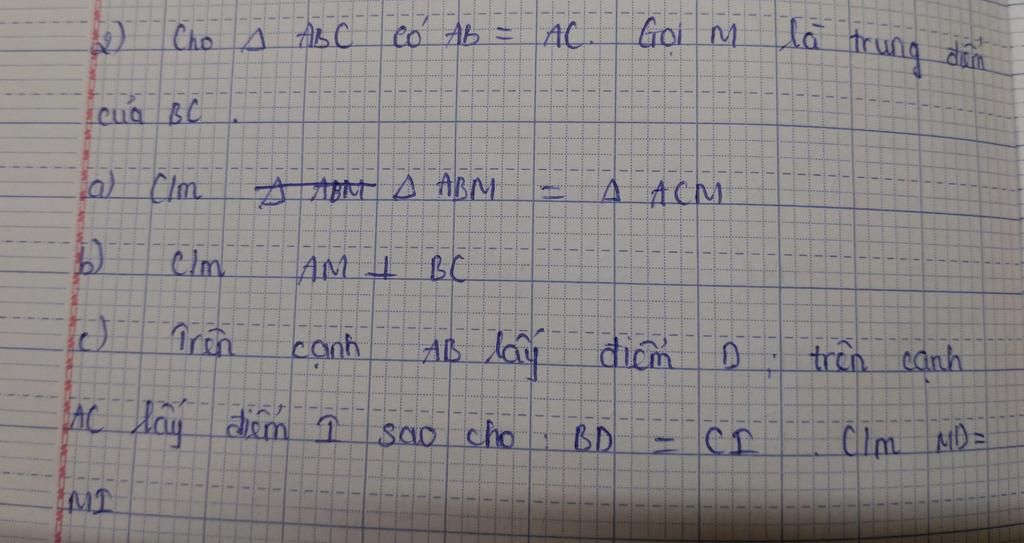 2) Cho Δ ABC có AB = AC. Gọi M là trung điểm
của BC.
a) C/m Δ ABM Δ ABM = Δ ACM
b) C/m AM ⊥ BC
c) Trên cạnh AB lấy điểm D; trên cạnh
AC lấy điểm I sao cho: BD = CI. C/m MD=
MI